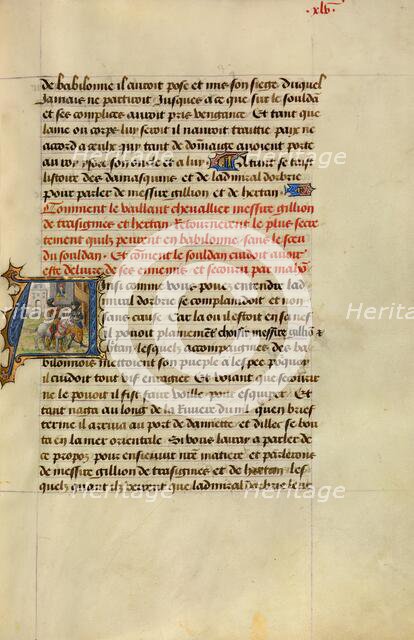 .xlv.
de babilonne il auoit pose et mis son siege duquel
Jamais ne partiroit Jusques a ce que sur le souldan
et ses complices auroit pris vengance. Et tant que
lame ou corps luy seroit il nauroit traittie paix ne
accord a ceulx qui tant de dommaige auoient porte
au roy son oncle et a luy Atant se taist
listoire des damasquins et de ladmiral dorbrie
pour parler de messire gillion et de hertan.
Comment le vaillant cheuallier messire gillion
de trasignies et hertan Retournerent le plus secre
tement quilz peurent en babilonne sans le sceu
du souldan. Et coment le souldan cuidoit auoir
este deliure de ses ennemis et secouru par mahom
Ainsi comme vous pouez entendre lad
miral dorbrie se complaindoit et non
sans cause Car la ou il estoit en sa nef
il pouoit plainement choisir messire gillion et
hertan lesquelz accompaignies des ba
bilonnois mettoient son pueple a lespee pourquoy
il cuidoit tout vif enragier Et voiant que secourir
ne le pouoit il fist faire voille pour esquiper Et
tant naga au long de la Riuiere du nil quen brief
terme il arriua au port de damiette et dillec se bou
ta en la mer orientale Si vous lairay a parler de
ce propoz pour ensieuuir nre matiere et parlerons
de messire gillion de trasignies et de hertan les
quelz quant ilz veirent que ladmiral dorbrie sen
Heritage
Heritage
Heritage
Heritage
Heritage
Heritage